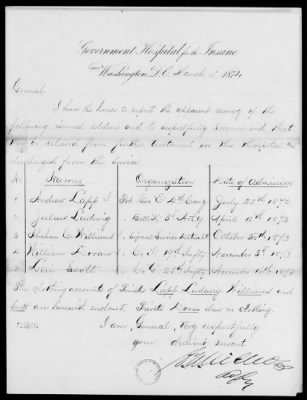 Government Hospital for the Insane
Washington D.C. March 1874
General
I have the honor to report the apparent recovery of the
following insane soldiers and to respectfully recommend that
be relieved from further treatment in this Hospital
discharged from the Service
No Names Organization Date of Admission
1 Andrew Lapp Co. E Cavy July 1872
2 Julius Ludwig Batt. Arty April 10th 1873
3 Abraham C. Williams Signal Service October 30th 1873
4 William Doran Co. Infty November 3rd 1873
5 Scott Co. G 25th Infty November 16th 1873
The clothing account of Privates Lapp, Ludwig, Williams and
Scott are herewith enclosed. Private Doran drew no clothing.
I am General, Very respectfully
your obedient servant